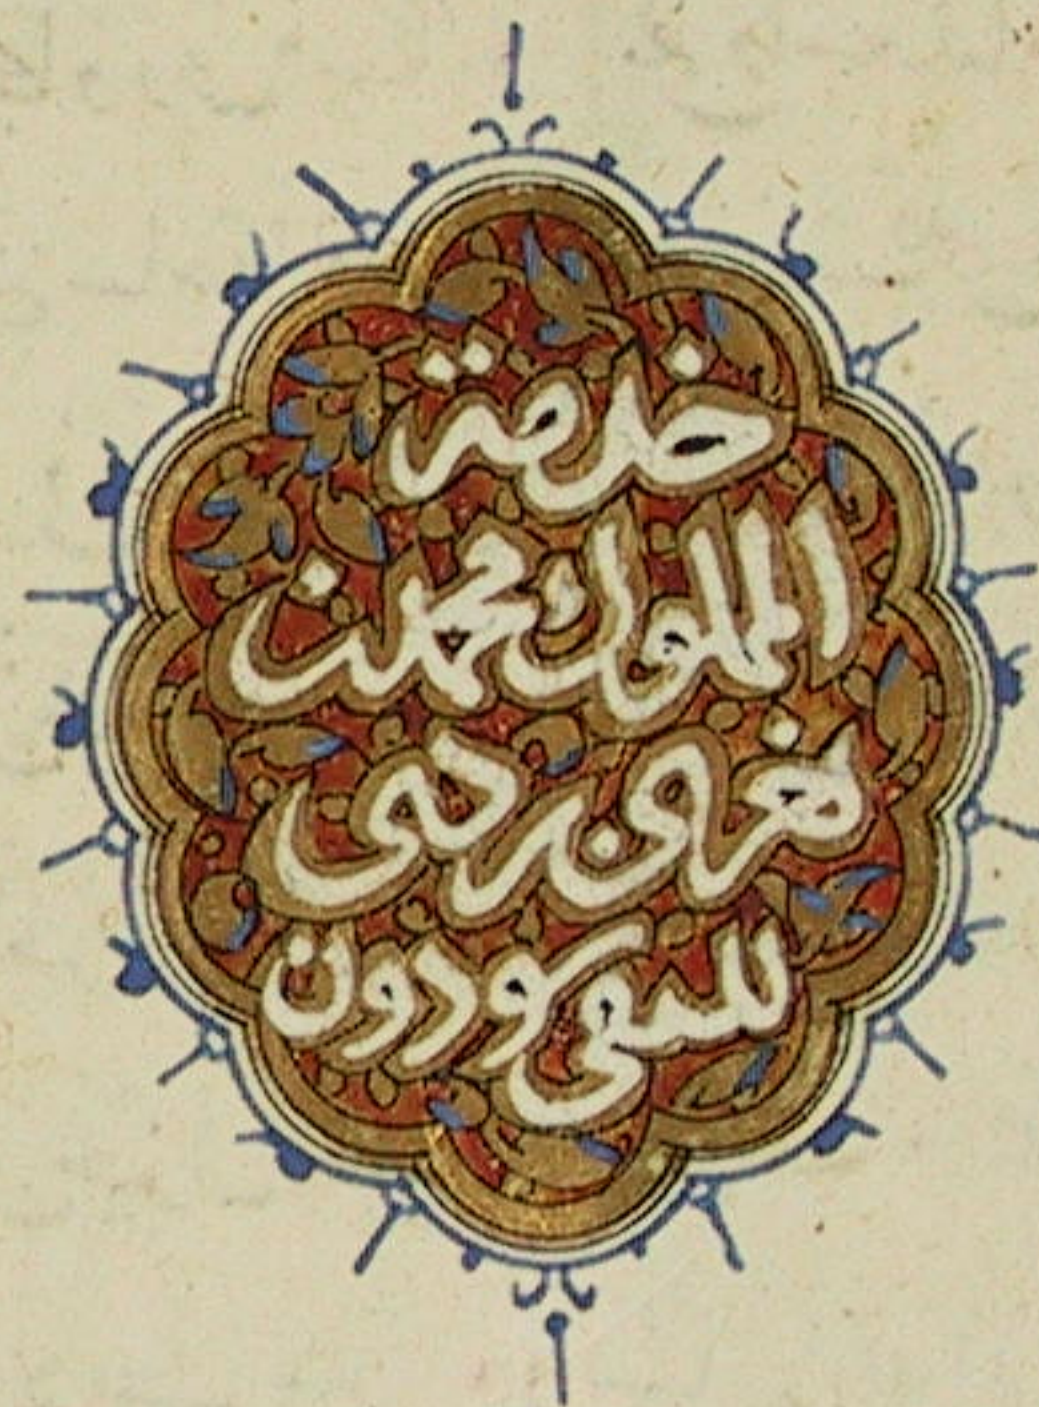 خدمة
المملوك محمد بن
تغرى بردى
السيفى سودون